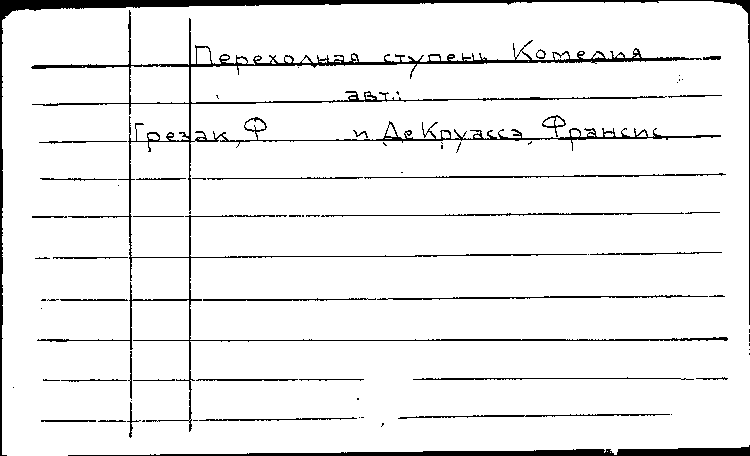 Переходная ступень Комедия
авт.:
Грезак, Ф и Де Круассэ, Франсис